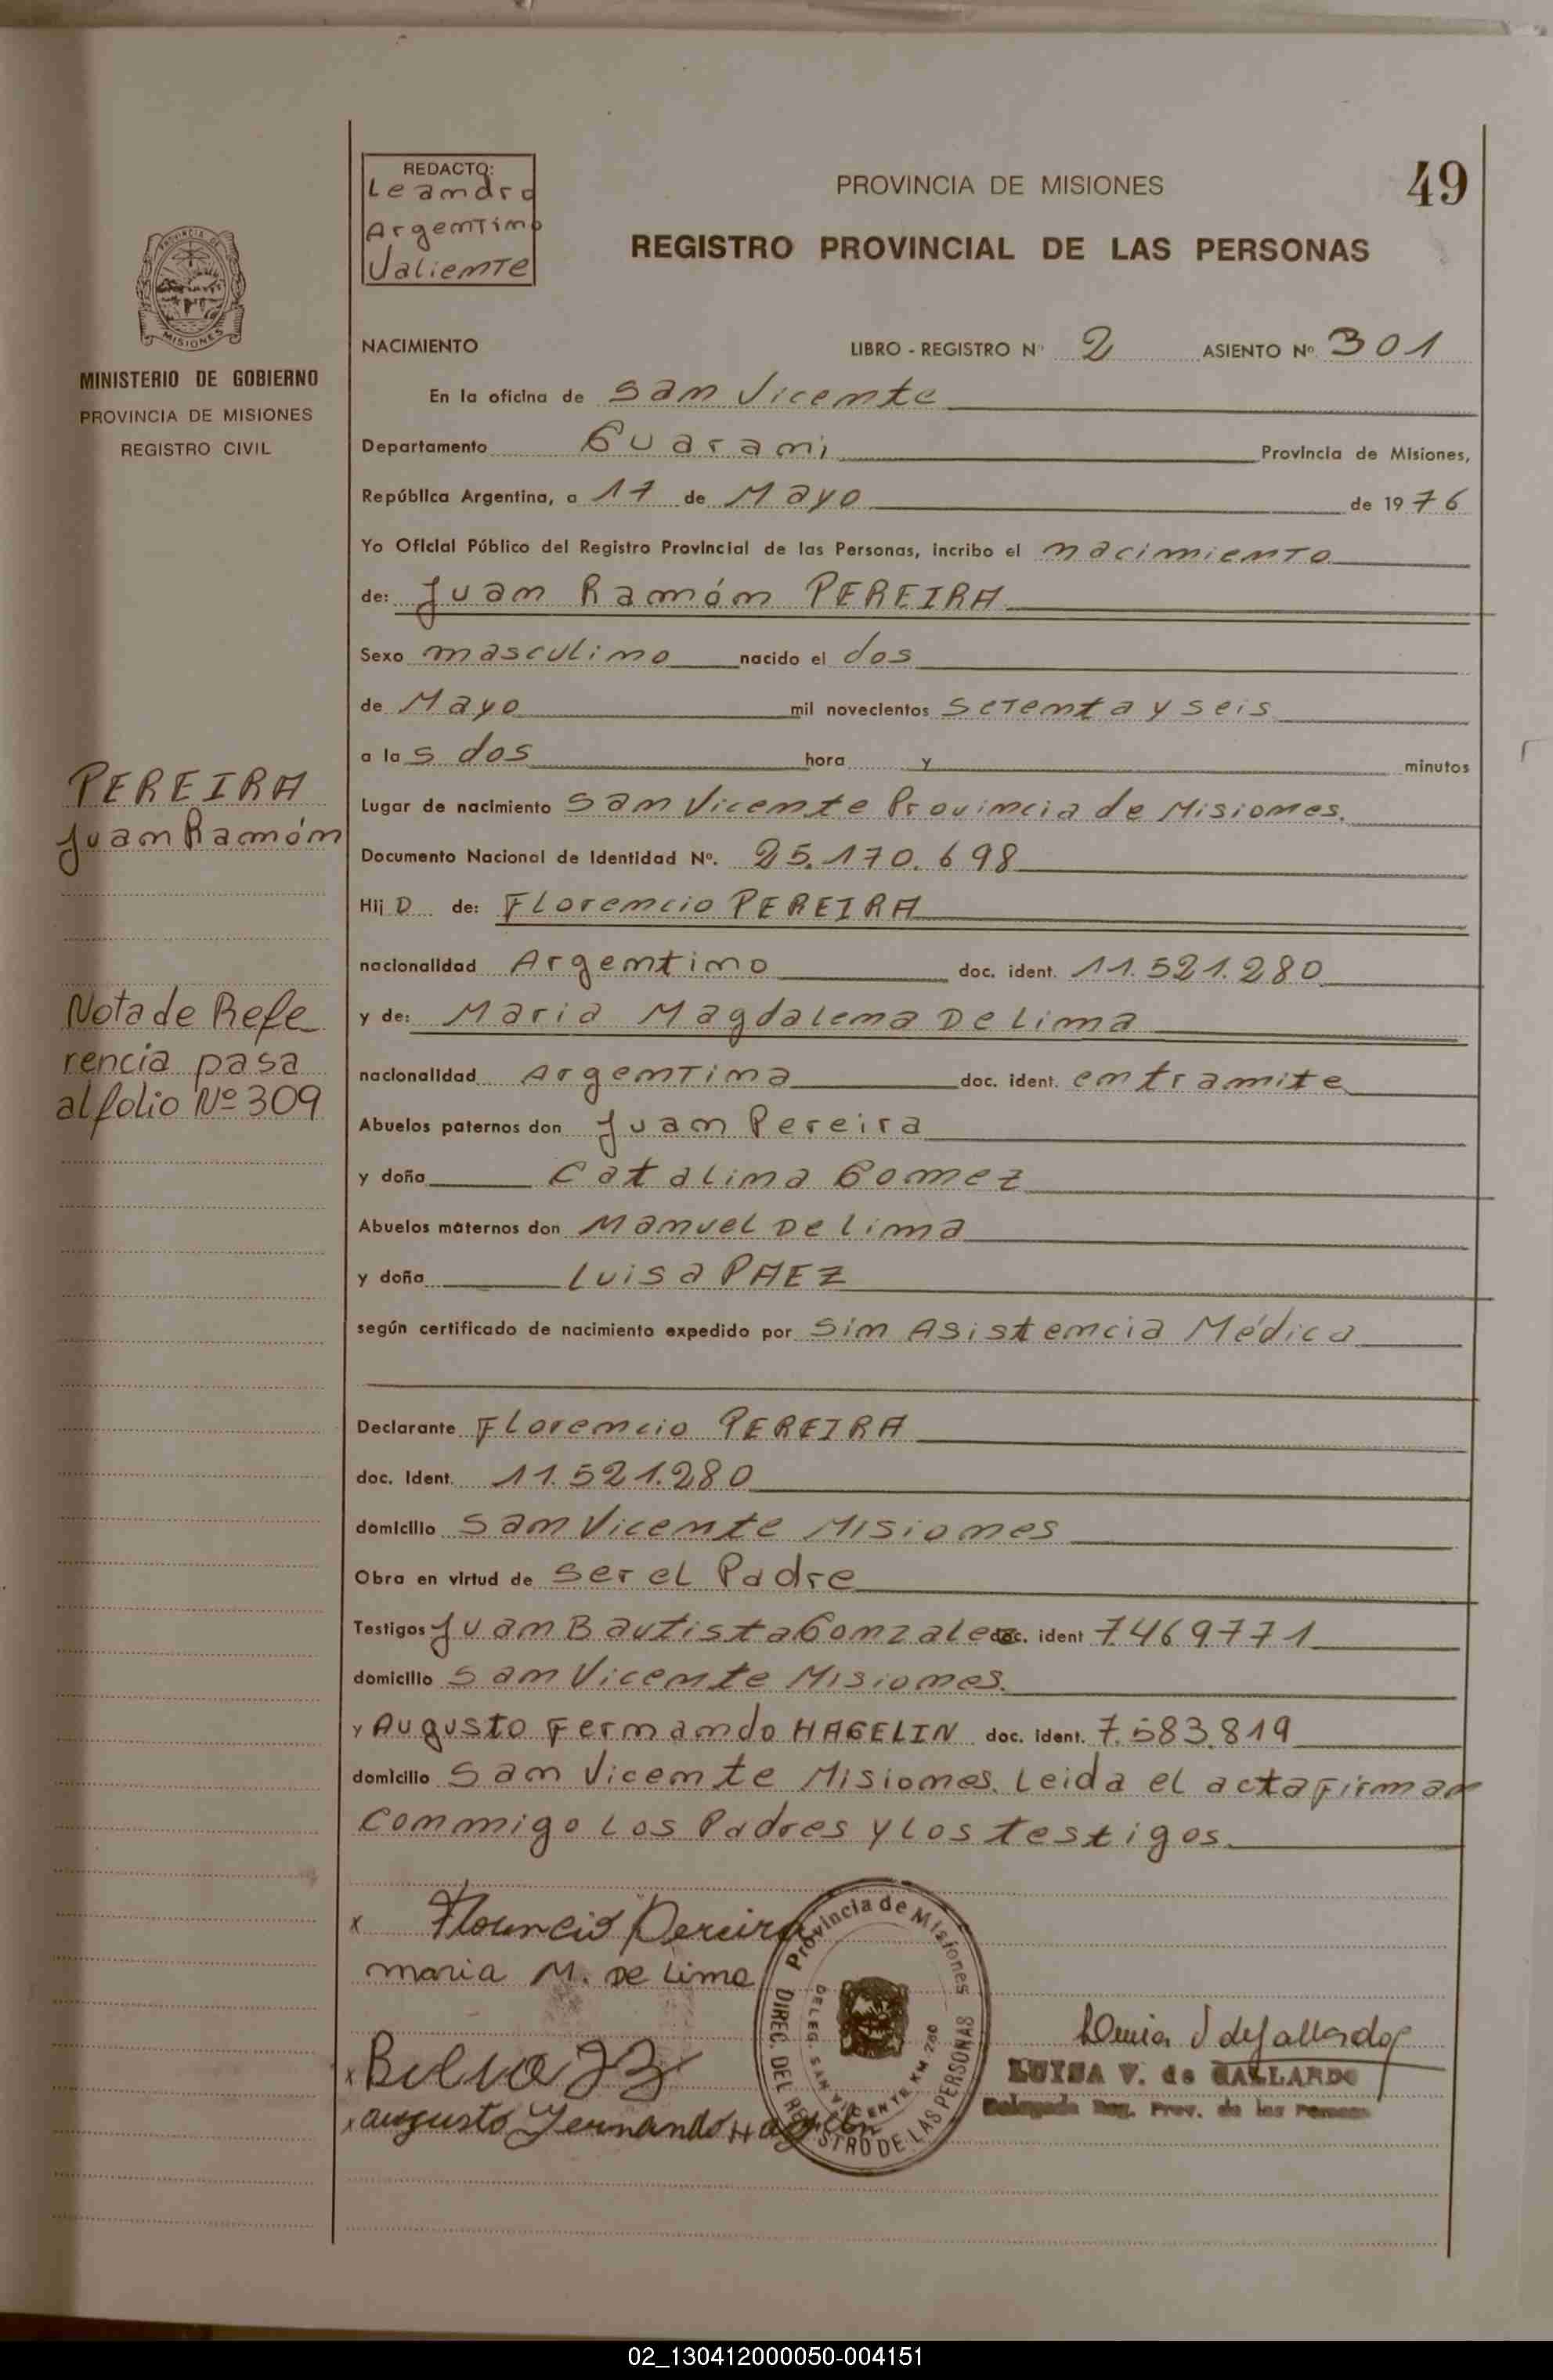 49
REDACTO:
Leandro
Argentino
Valiente
PROVINCIA DE MISIONES
REGISTRO PROVINCIAL DE LAS PERSONAS
PROVINCIA DE
MISIONES
MINISTERIO DE GOBIERNO
PROVINCIA DE MISIONES
REGISTRO CIVIL
NACIMIENTO LIBRO - REGISTRO Nº 2 ASIENTO Nº 301
En la oficina de San Vicente
Departamento Guaraní Provincia de Misiones,
República Argentina, a 17 de Mayo de 1976
Yo Oficial Público del Registro Provincial de las Personas, incribo el nacimiento
de: Juan Ramón PEREIRA
Sexo masculino nacido el dos
de Mayo mil novecientos setenta y seis
a las dos hora y minutos
PEREIRA
Juan Ramón
Lugar de nacimiento San Vicente Provincia de Misiones.
Documento Nacional de Identidad Nº. 25.170.698
Hijo de: Florencio PEREIRA
nacionalidad Argentino doc. ident. 11.521.280
Nota de Refe
rencia pasa
al folio Nº 309
y de: Maria Magdalena De lima
nacionalidad Argentina doc. ident. en tramite
Abuelos paternos don Juan Pereira
y doña Catalina Gomez
Abuelos maternos don Manuel De lima
y doña Luisa PAEZ
según certificado de nacimiento expedido por Sin Asistencia Médica
Declarante Florencio PEREIRA
doc. Ident. 11.521.280
domicilio San Vicente Misiones
Obra en virtud de ser el Padre
Testigos Juan Bautista Gonzalez doc. ident 7.469.771
domicilio San Vicente Misiones.
y Augusto Fernando HAGELIN doc. ident. 7.583.819
domicilio San Vicente Misiones. Leida el acta firman
conmigo los Padres y los testigos.
x Florencio Pereira
maria M. De Lima
x
x augusto Fernando Hagelin
Provincia de Misiones
DIREC. DEL REGISTRO DE LAS PERSONAS
DELEG. SAN VICENTE KM 260
LUISA V. de GALLARDO
Delegada Reg. Prov. de las Personas
02_130412000050-004151